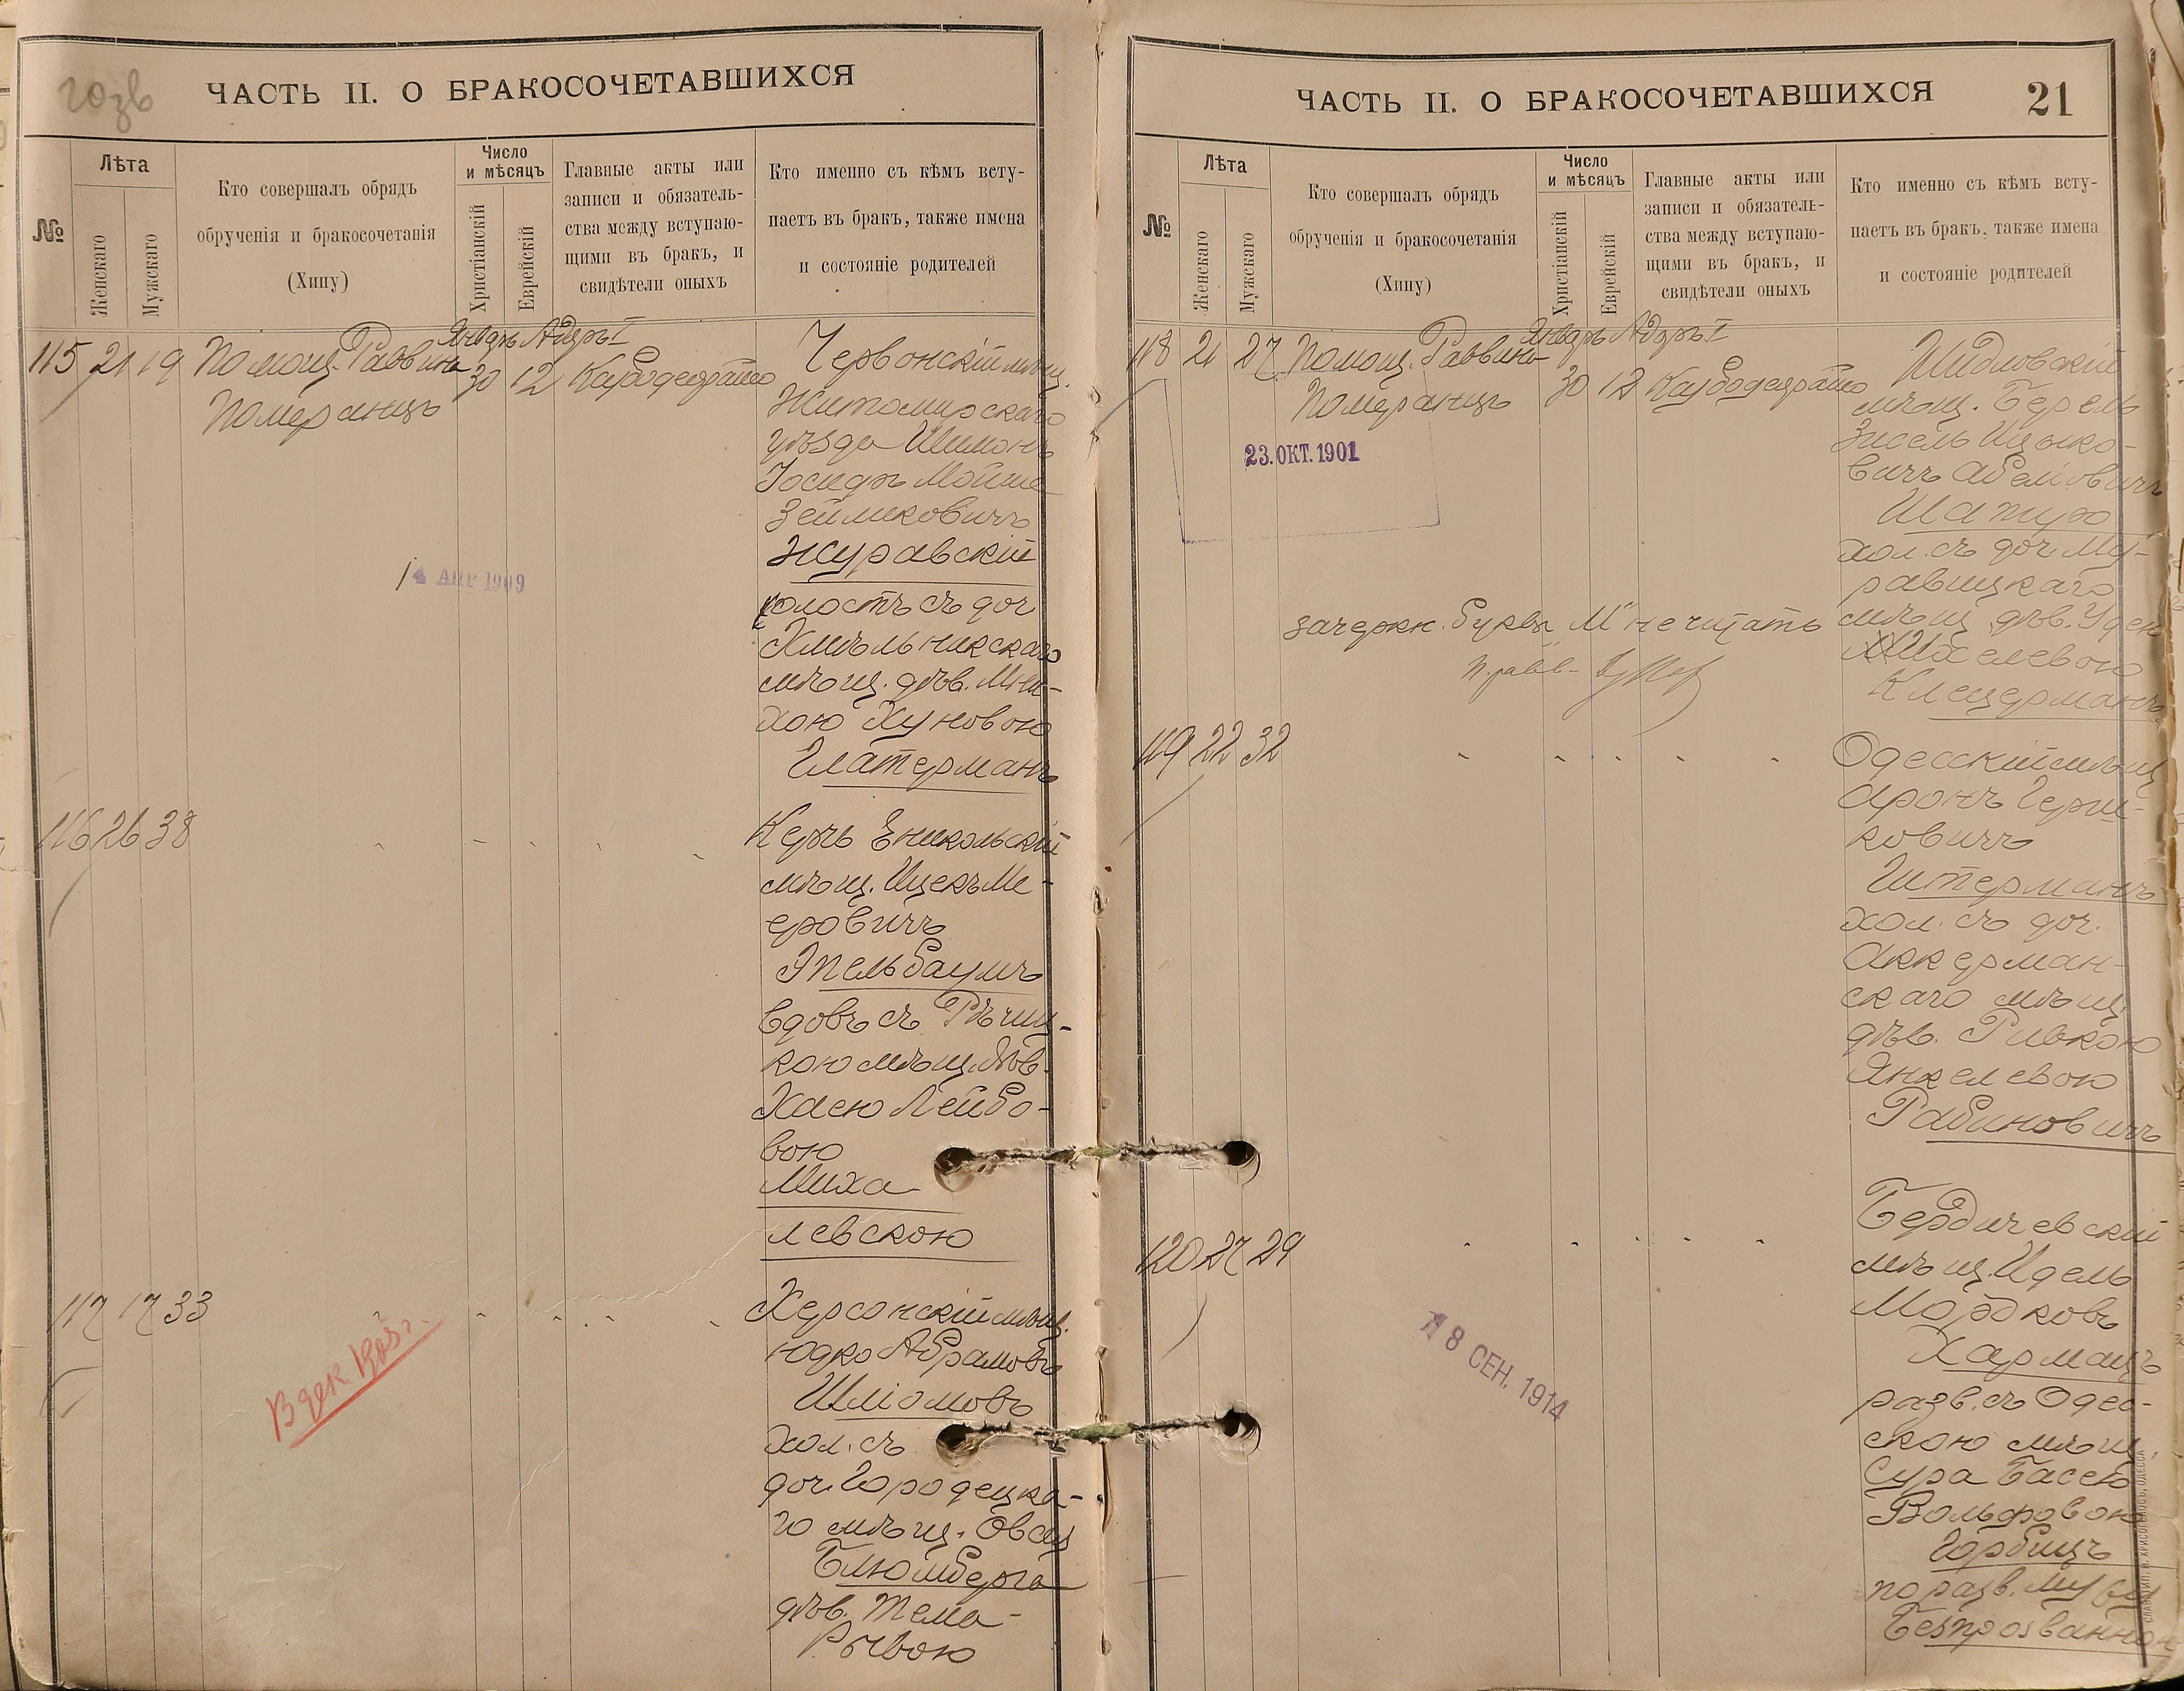 ЧАСТЬ II. О БРАКОСОЧЕТАВШИХСЯ
№
Лѣта
Женскаго
Мужскаго
Кто совершалъ обрядъ
обрученія и бракосочетанія
(Хипу)
Число
и мѣсяцъ
Христіанскій
Еврейскій
Главные акты или
записи и обязатель-
ства между вступаю-
щими въ бракъ, и
свидѣтели оныхъ
Кто именно съ кѣмъ всту-
паетъ въ бракъ, также имена
и состояніе родителей
115 21 19 Помощ. Раввина
Померанцъ
Январь Адаръ I
30 12
Червонскій мѣщ.
Житомирскаго
уѣзда Шимонъ
Іосифъ Мойше
Зейликовичъ
Журавскій
холостъ съ доч
Хмѣльникскаго
мѣщ. дѣв. Мин-
хою Хуновою
Глатерманъ
14 АПР 1909
116 26 38
Керчь Еникольскій
мѣщ. Ицекъ Ме-
еровичъ
Эпельбаумъ
вдовъ съ Рѣчиц-
кою мѣщ. дѣв.
Хасею Лейбо-
вою
Миха-
левскою
117 17 33
Херсонскій мѣщ.
Юдко Абрамовъ
Шліомовъ
хол. съ
доч. Городецка-
го мѣщ. Овсея
Блюмберга
дѣв. Тема-
Рывою
ЧАСТЬ II. О БРАКОСОЧЕТАВШИХСЯ
21
№
Лѣта
Женскаго
Мужскаго
Кто совершалъ обрядъ
обрученія и бракосочетанія
(Хипу)
Число
и мѣсяцъ
Христіанскій
Еврейскій
Главные акты или
записи и обязатель-
ства между вступаю-
щими въ бракъ, и
свидѣтели оныхъ
Кто именно съ кѣмъ всту-
паетъ въ бракъ, также имена
и состояніе родителей
118 21 27 Помощ. Раввина
Померанцъ
Январь Адаръ I
30 12
23. ОКТ. 1901
Шидловскій
мѣщ. Берель
Зисель Ицко-
вичъ Абелiовичъ
Шапух
хол. съ доч. Му-
равицкаго
мѣщ. дѣв. Уден
Михелевою
Клецерманъ
зачеркн. буквы "М" не читать
119 22 32
Одесскій мѣщ
Аронъ Герш-
ковичъ
Штерманъ
хол. съ доч.
Аккерман-
скаго мѣщ.
дѣв. Ривкою
Янкелевою
Рабиновичъ
120 27 29
Бердичевскій
мѣщ. Идель
Мордковъ
Хармацъ
разв. съ Одес-
скою мѣщ.
Сура Басею
Вольфовою
Горбицъ
по разв. мужу
Безпрозванною
18 СЕН. 1914